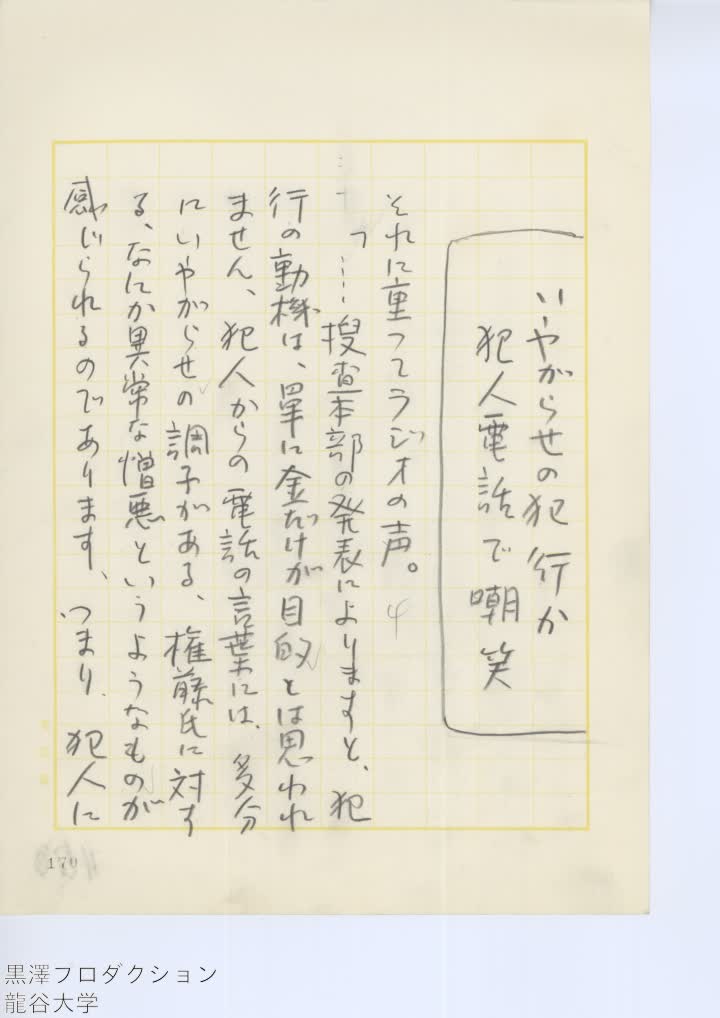 いやがらせの犯行か
犯人電話で嘲笑
それに重つてラジオの声。
「……捜査本部の発表によりますと、犯
行の動機は、単に金だけが目的とは思われ
ません、犯人からの電話の言葉には、多分
にいやがらせの調子がある、権藤氏に対す
る、なにか異常な憎悪というようなものが
感じられるのであります、つまり、犯人に
170
黒澤プロダクション
龍谷大学